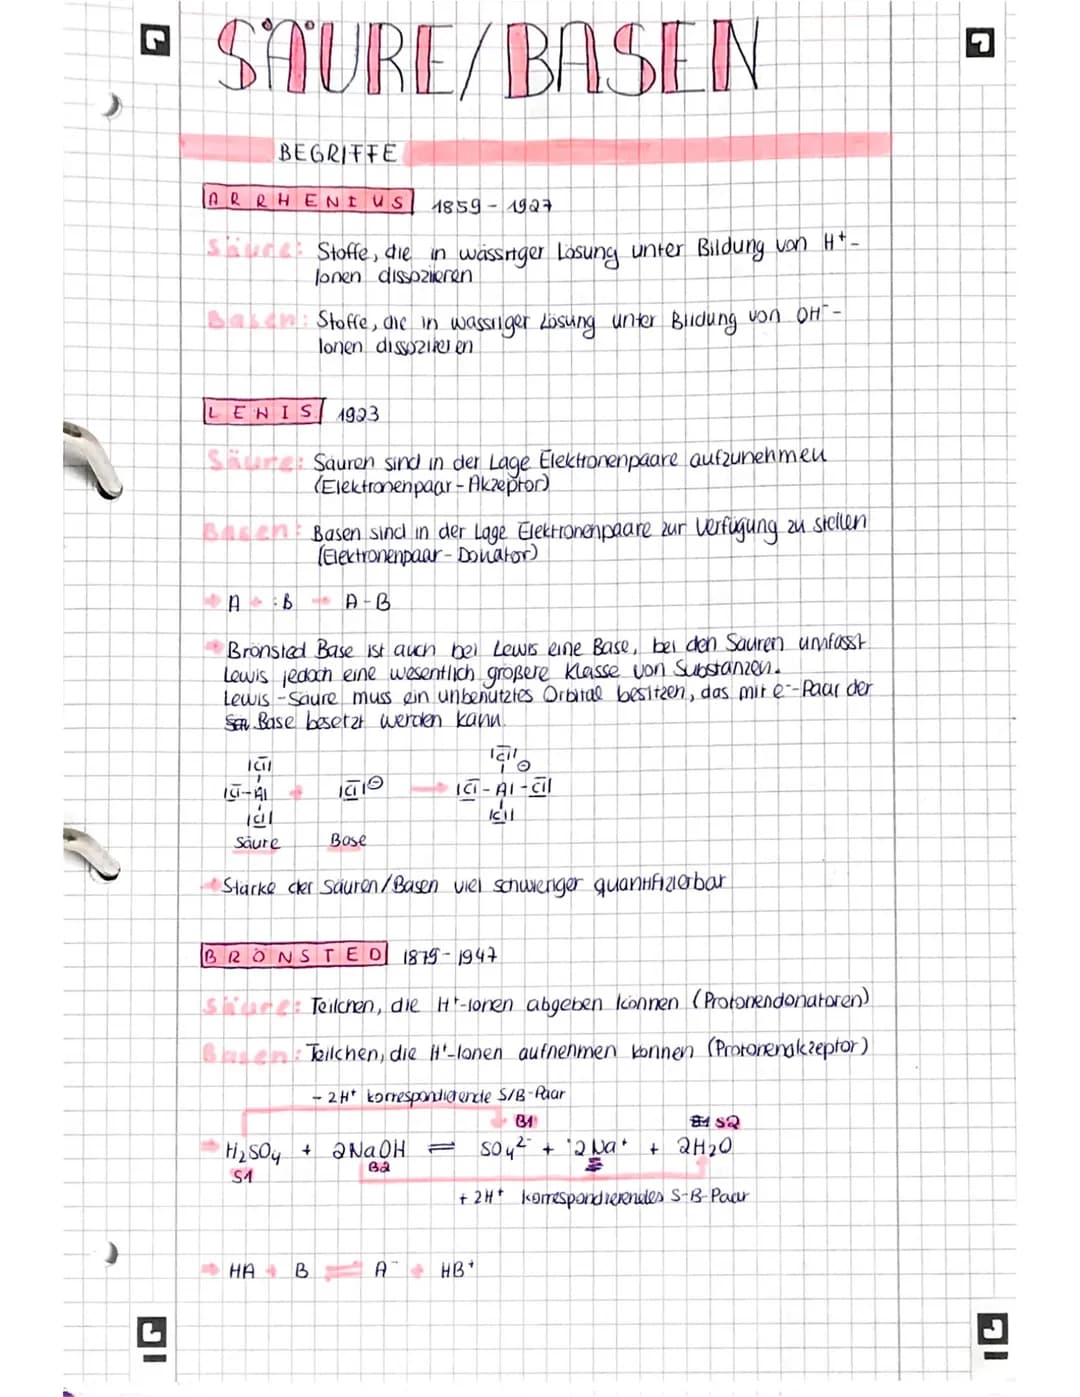 SÄURE/BASEN
BEGRIFFE
ARRHENIUS 1859 - 1927
Säure: Stoffe, die in wässriger Lösung unter Bildung von H⁺-
Ionen dissoziieren
Basen: Stoffe, die in wässriger Lösung unter Bildung von OH⁻-
Ionen dissoziieren
LEWIS 1923
Säure: Säuren sind in der Lage Elektronenpaare aufzunehmen
(Elektronenpaar-Akzeptor)
Basen: Basen sind in der Lage Elektronenpaare zur Verfügung zu stellen
(Elektronenpaar-Donator)
→ A + :B → A-B
→ Brönsted Base ist auch bei Lewis eine Base, bei den Säuren umfasst
Lewis jedoch eine wesentlich größere Klasse von Substanzen.
Lewis-Säure muss ein unbenutztes Orbital besitzen, das mit e⁻-Paar der
Base besetzt werden kann.
|Cl| |Cl| ⊖
|Cl-Al + |Cl|⊖ → |Cl-Al-Cl|
|Cl| |Cl|
Säure Base
→ Stärke der Säuren/Basen viel schwieriger quantifizierbar
BRÖNSTED 1879-1947
Säure: Teilchen, die H⁺-Ionen abgeben können (Protonendonatoren)
Basen: Teilchen, die H⁺-Ionen aufnehmen können (Protonenakzeptor)
- 2H⁺ korrespondierende S/B-Paar
B1 S2
→ H₂SO₄ + 2NaOH ⇌ SO₄²⁻ + 2Na⁺ + 2H₂O
S1 B2
+ 2H⁺ korrespondierendes S-B-Paar
→ HA + B ⇌ A⁻ + HB⁺